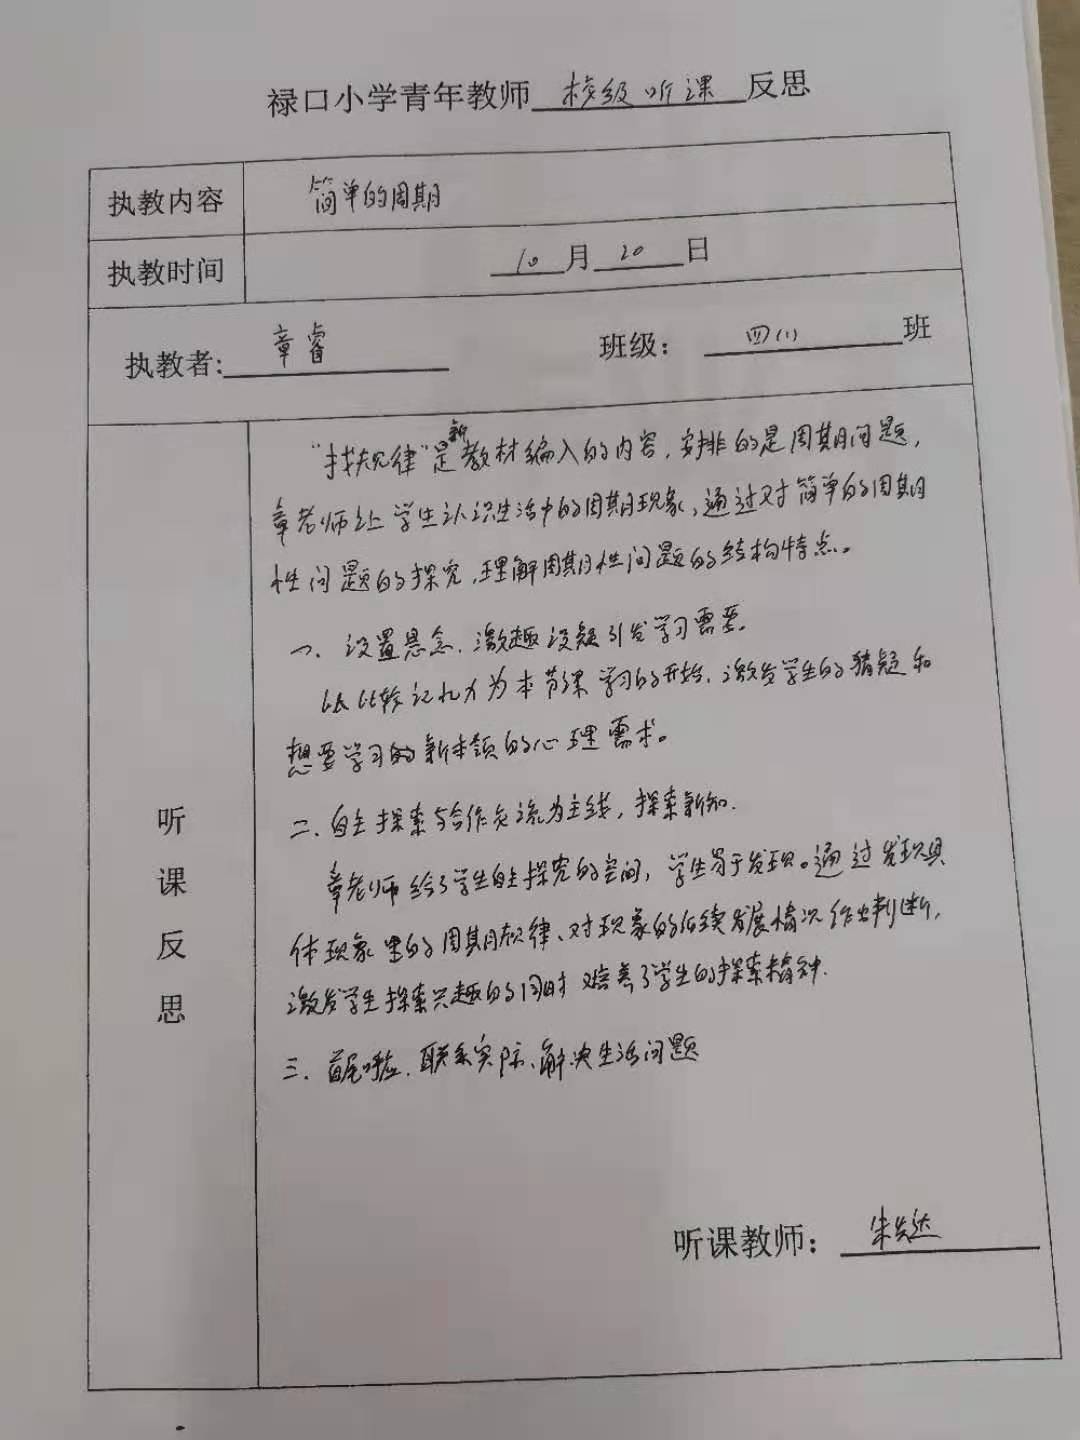 禄口小学青年教师校级听课反思
执教内容 简单的周期
执教时间 10月20日
执教者: 章睿 班级: 四(1)班
听课反思
"找规律"是新教材编入的内容,安排的是周期问题,
章老师让学生认识生活中的周期现象,通过对简单的周期
性问题的探究,理解周期性问题的结构特点。
一、设置悬念,激趣设疑引发学习需要。
以比较记忆力为本节课学习的开始,激发学生的猜疑和
想要学习的新本领的心理需求。
二、自主探索与合作交流为主线,探索新知.
章老师给了学生自主探究的空间,学生易于发现。通过发现具
体现象里的周期规律、对现象的后续发展情况作出判断,
激发学生探索兴趣的同时培养了学生的探索精神.
三、首尾呼应,联系实际、解决生活问题
听课教师: 朱达